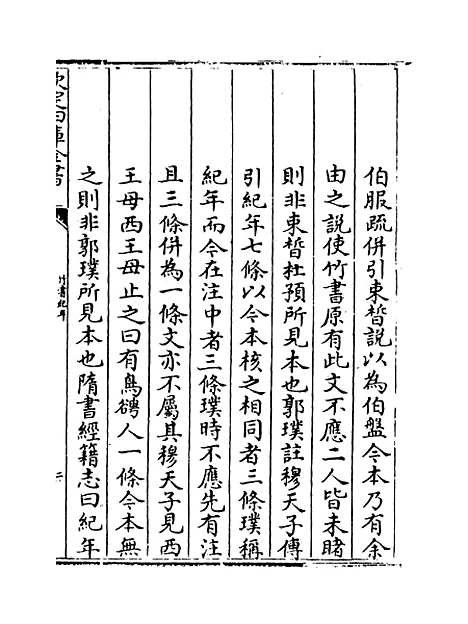 伯服疏併引束晳説以為伯盤今本乃有余
由之説使竹書原有此文不應二人皆未睹
則非束晳杜預所見本也郭璞註穆天子傳
引紀年七條以今本核之相同者三條璞稱
紀年而今在注中者三條璞時不應先有注
且三條併為一條文亦不屬其穆天子見西
王母西王母止之曰有鳥䳽人一條今本無
之則非郭璞所見本也隋書經籍志曰紀年
欽定四庫全書
竹書紀年
二